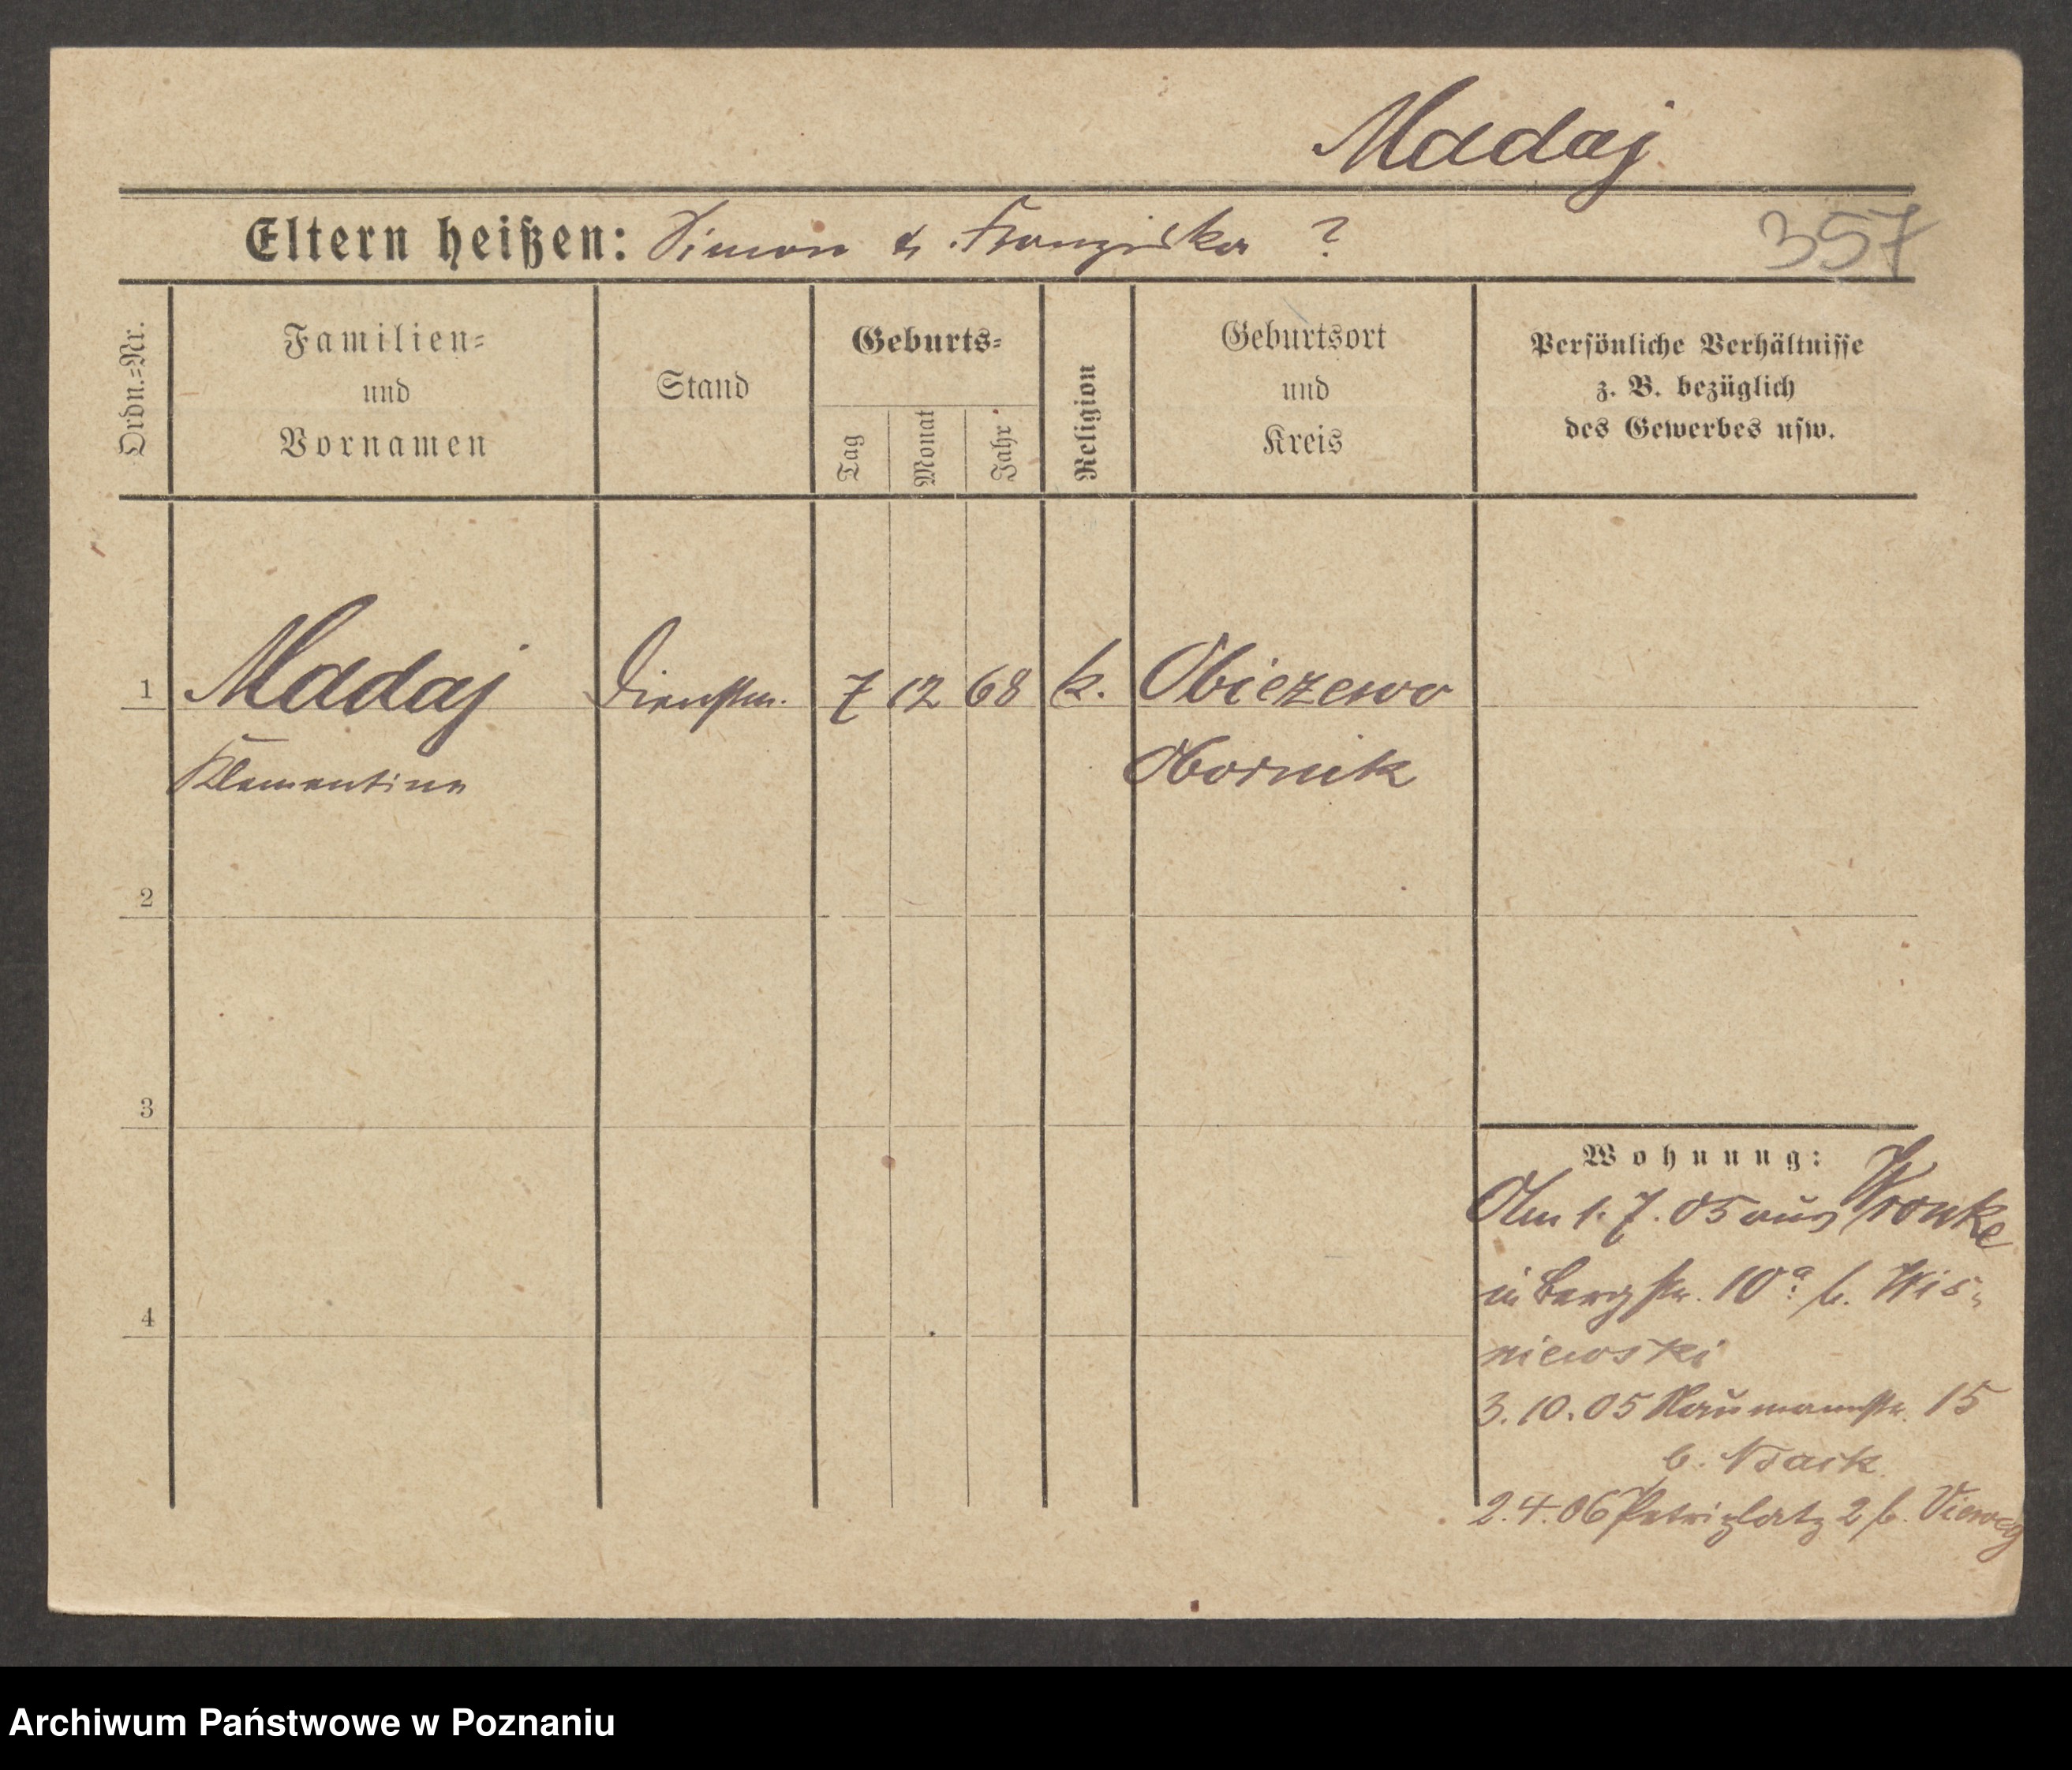 Madaj
Eltern heißen: Simon & Franziska ?
357
Ordn.=Nr.
Familien=
und
Vornamen
Stand
Geburts=
Tag
Monat
Jahr
Religion
Geburtsort
und
Kreis
Persönliche Verhältnisse
z. B. bezüglich
des Gewerbes usw.
1 Madaj Dienstm. 7 12 68 k. Obiezewo
Klementine Obornik
2
3
4
Wohnung:
Am 1.7.05 aus Wronke
in Bergstr. 10a b. Wis=
niewski
3.10.05 Naumannstr. 15
b.
2.4.06 Petriplatz 2 b. Vieweg
Archiwum Państwowe w Poznaniu